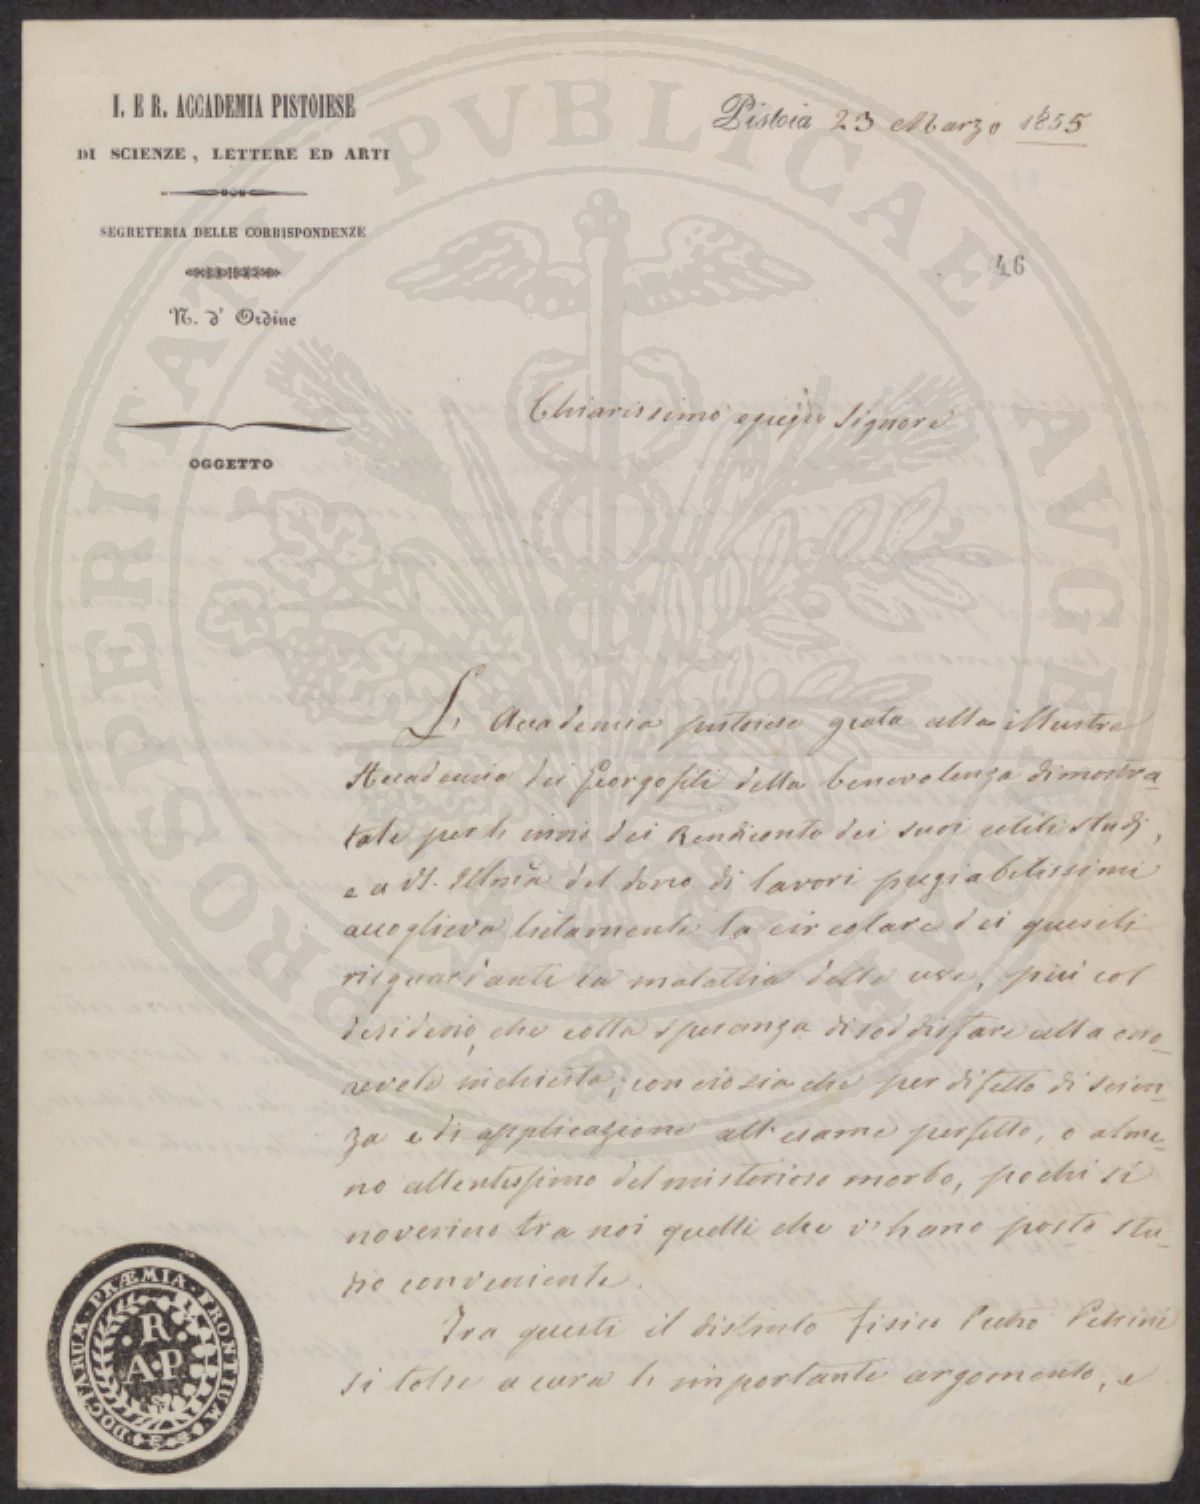 I. E R. ACCADEMIA PISTOIESE
DI SCIENZE, LETTERE ED ARTI
SEGRETERIA DELLE CORRISPONDENZE
N. d' Ordine
OGGETTO
Pistoia 23 Marzo 1855
46
Chiarissimo egregio Signore
L' Accademia pistoiese grata alla illustre
Accademia dei Georgofili della benevolenza dimostra-
tale per lo invio dei Rendiconto dei suoi utili studj,
e a VS. Illma del dono di lavori pregiabilissimi
accoglieva lietamente la circolare dei quesiti
risguardanti la malattia delle uve, più col
desiderio, che colla speranza di soddisfare alla ono-
revole inchiesta; conciosia che per difetto di scien-
za e di applicazione all' esame perfetto, o alme-
no attentissimo del misterioso morbo, pochi si
noverino tra noi quelli che v' hano posto stu-
dio conveniente.
Tra questi il distinto fisico Pietro Petrini
si tolse a cura lo importante argomento, e
DOCTARUM PRÆMIA FRONTIUM
R
A.P
PROSPERITATI PVBLICAE AVGENDAE